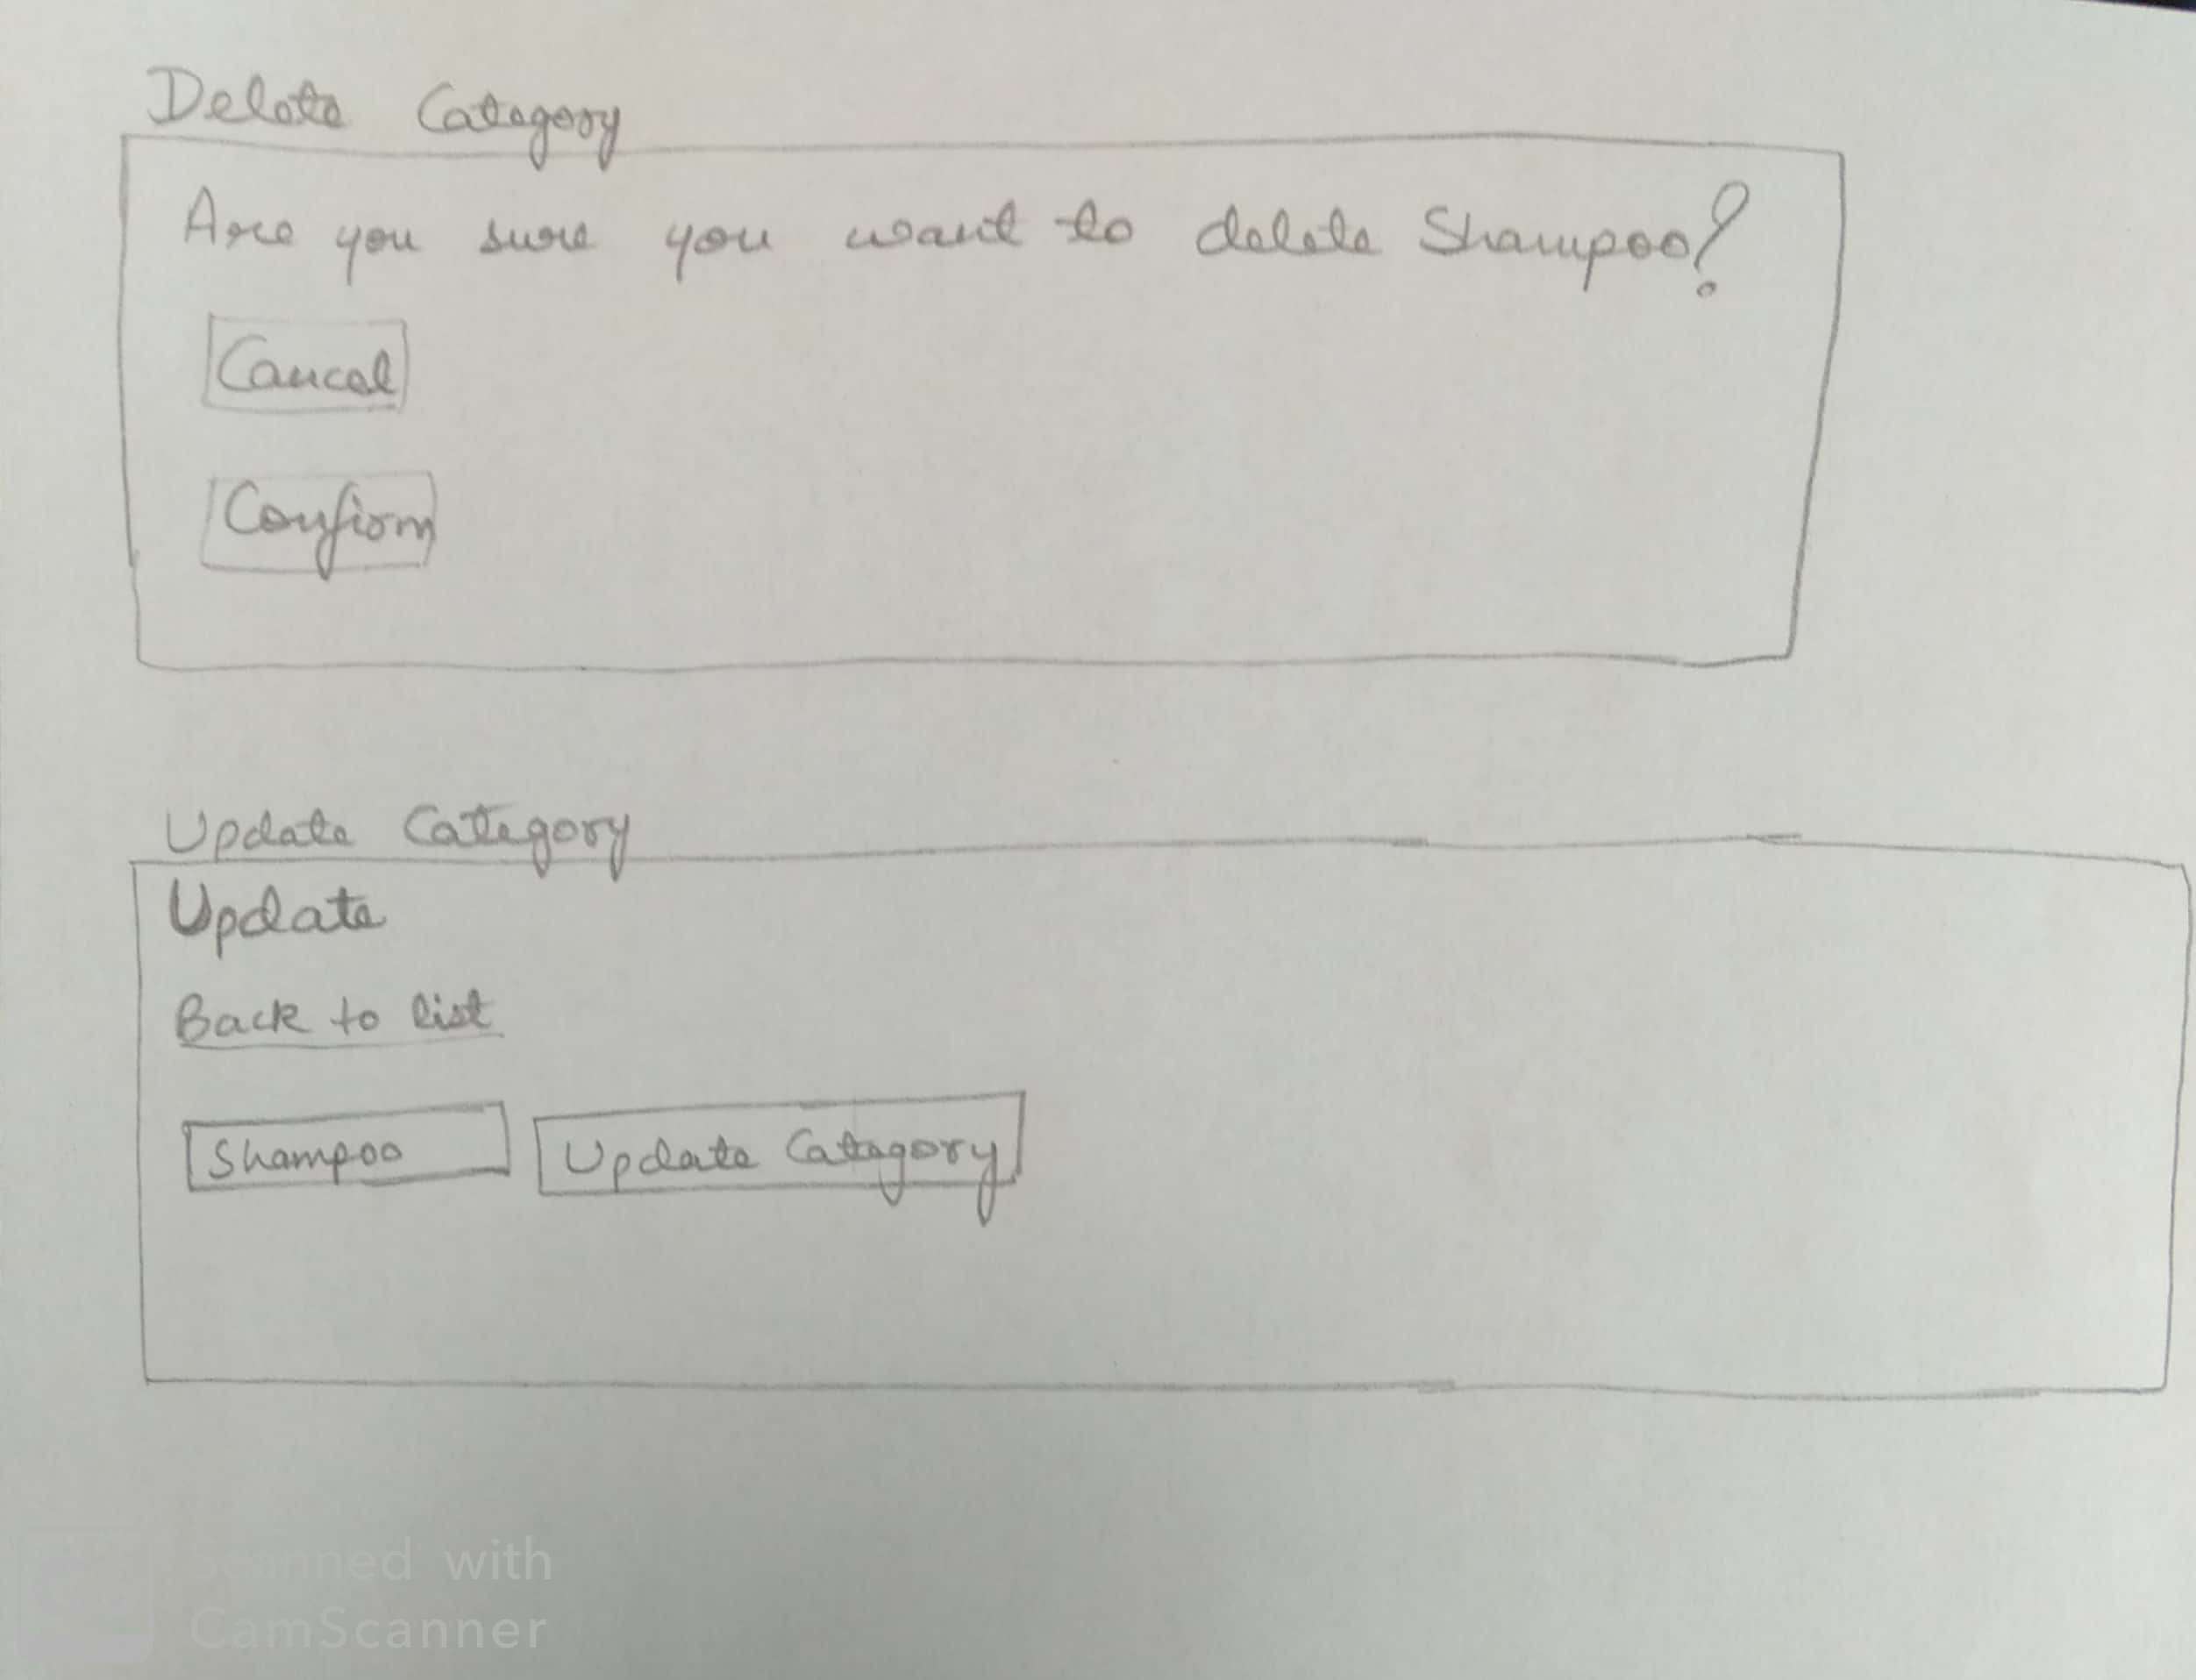 Delete Category
Are you sure you want to delete Shampoo?
Cancel
Confirm
Update Category
Update
Back to list
Shampoo Update Category
Scanned with
CamScanner